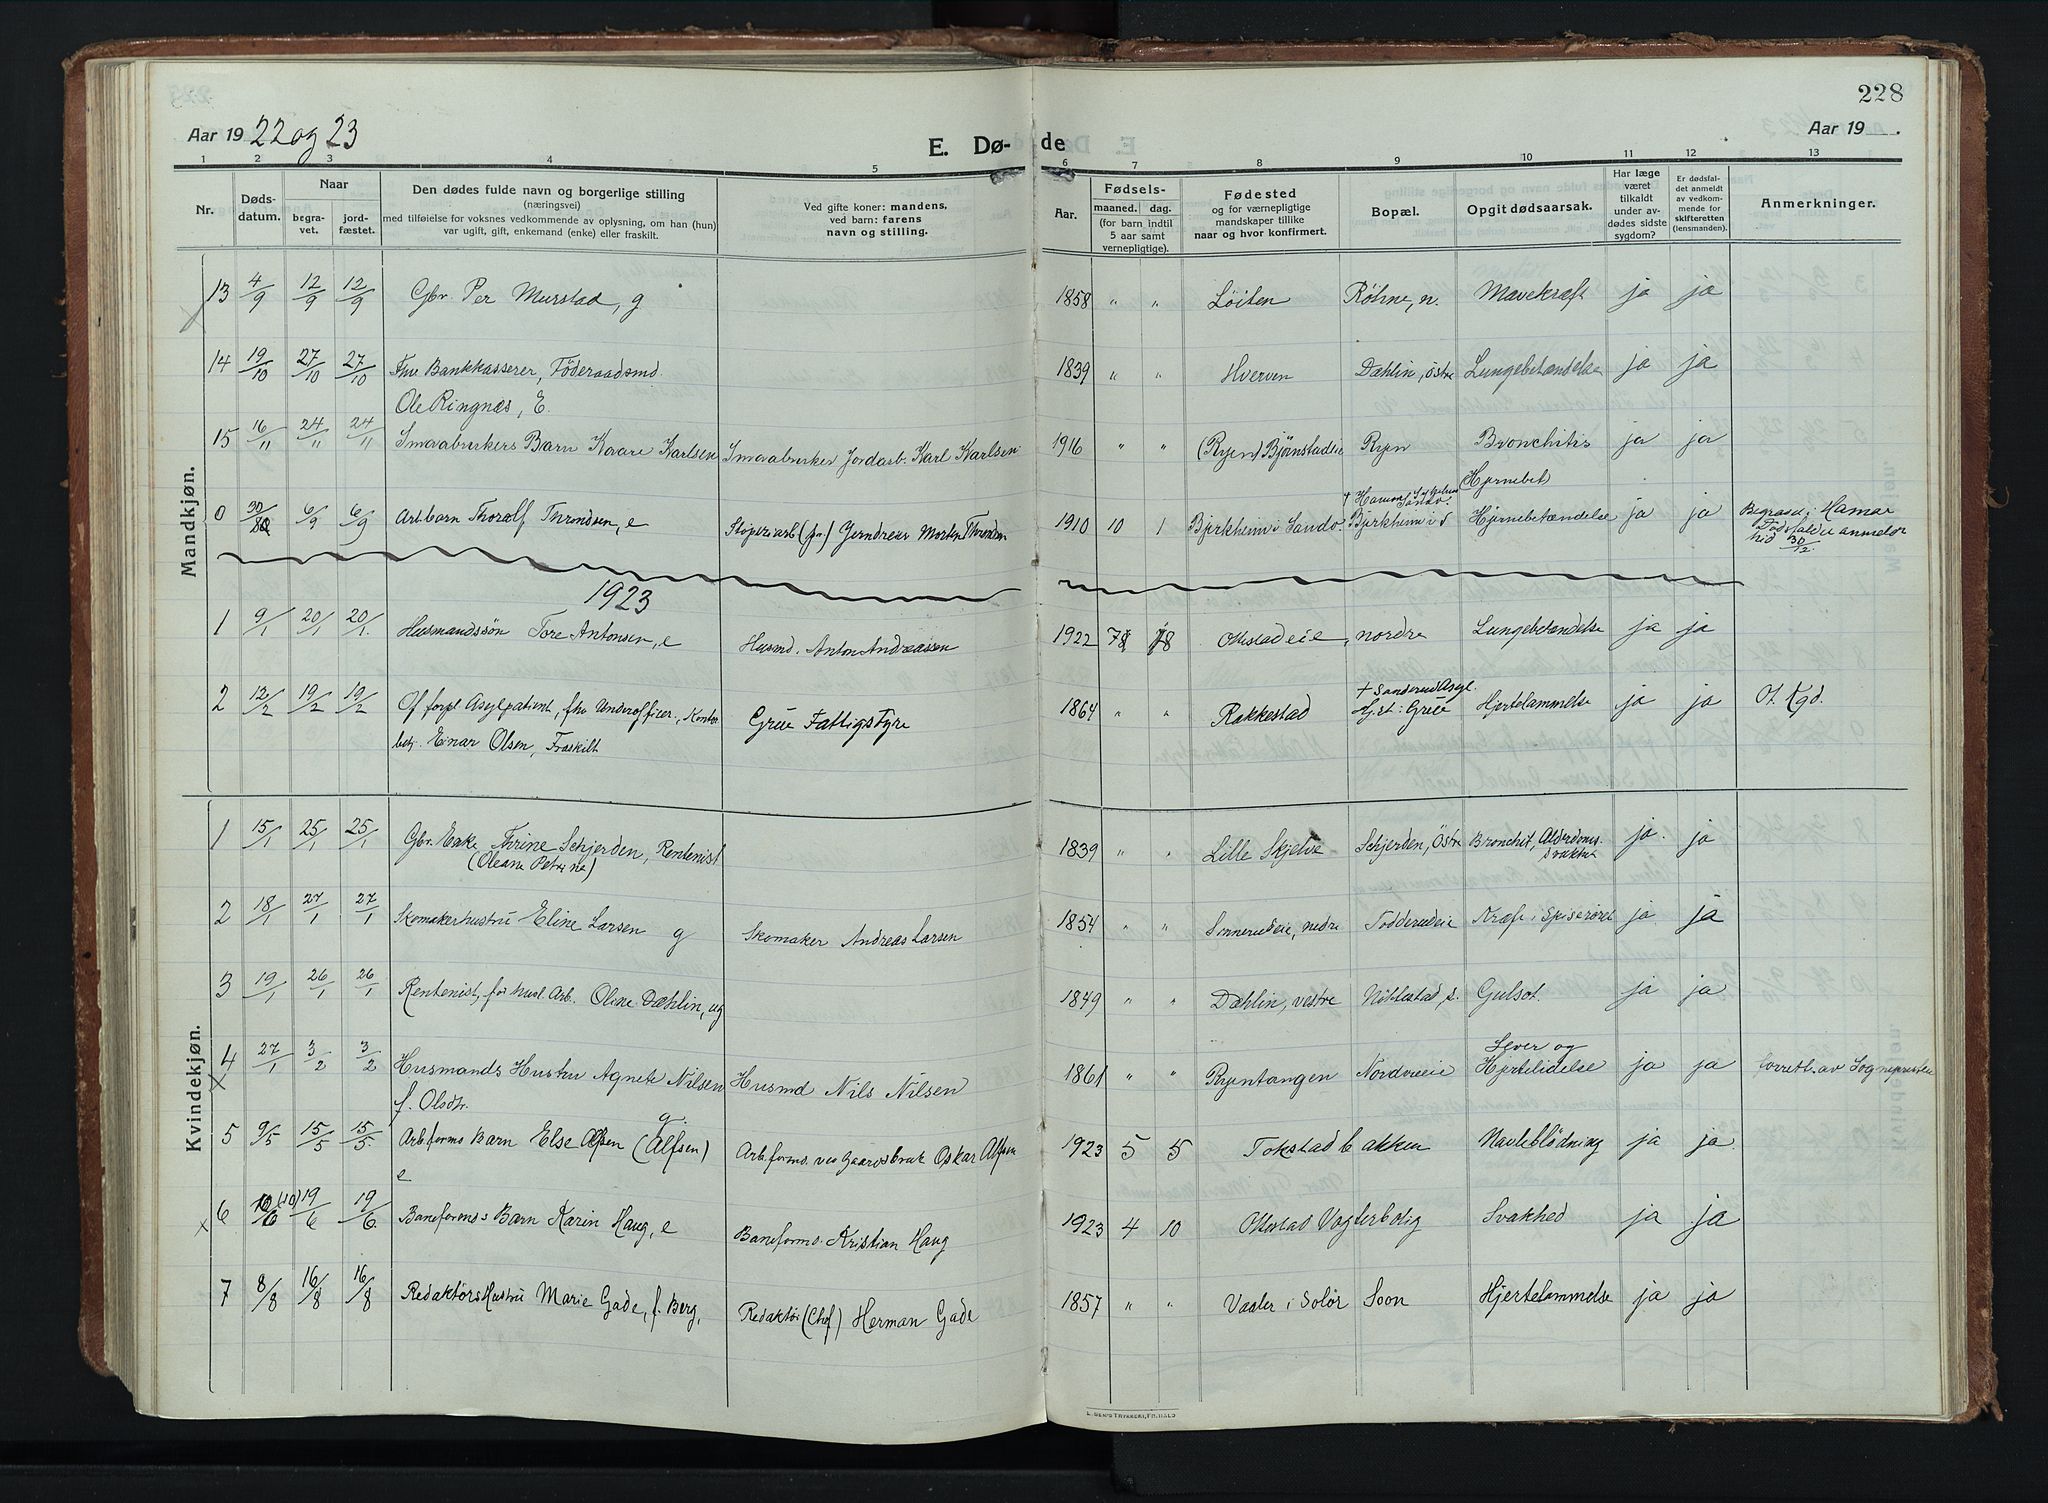 228
Aar 19 22 og 23
E. Dø- de
Aar 19 .
1 2 3 4 5 6 7 8 9 10 11 12 13
Nr.
Døds-
datum.
Naar
begra-
vet.
jord-
fæstet.
Den dødes fulde navn og borgerlige stilling
(næringsvei)
med tilføielse for voksnes vedkommende av oplysning, om han (hun)
var ugift, gift, enkemand (enke) eller fraskilt.
Ved gifte koner: mandens,
ved barn: farens
navn og stilling.
Aar.
Fødsels-
maaned. dag.
(for barn indtil
5 aar samt
vernepligtige).
Fødested
og for værnepligtige
mandskaper tillike
naar og hvor konfirmert.
Bopæl.
Opgit dødsaarsak.
Har læge
været
tilkaldt
under av-
dødes sidste
sygdom?
Er dødsfal-
det anmeldt
av vedkom-
mende for
skifteretten
(lensmanden).
Anmerkninger.
Mandkjøn.
13 4/9 12/9 12/9 Gbr. Per Murstad, g 1858 " " Løiten Röhne, n. Mavekræft ja ja
14 19/10 27/10 27/10 Fhv Bankkasserer, Föderaadsmd. 1839 " " Dæhlin, östre Lungebetændelse ja ja
Ole Ringnæs, E.
15 16/11 24/11 24/11 Smaabrukers Barn Kaare Karlsen Smaabruker Jordarb. Karl Karlsen 1916 " " (Ryen) Bjørnstadeie Ryen Bronchitis ja ja
Hjernebet
0 30/8 6/9 6/9 Arb.barn Thoralf Throndsen, e Morten Throndsen 1910 10 1 Bjerkheim i Sando Bjerkheim i S Hjernebetændelse ja ja Begravet i Hamar
Dödsfaldet anmeldt
hid 30/12.
1923
1 9/1 20/1 20/1. Husmandssön Tore Antonsen, e Husmd. Anton Andreassen 1922 7 18 Ottestadeie, nordre Lungebetændelse ja ja
2 12/2 19/2 19/2 Of. forpl Asylpatient, fhv Underofficer, Kontor Grue Fattigstyre 1864 " " Rakkestad + Sanderud Asyl. Hjertelammelse ja ja Ot. Kgd.
betj. Einar Olsen, Fraskilt Hjst: Grue
Kvindekjøn.
1 15/1 25/1 25/1 Gbr. Enke Thrine Schjerden, Rentenist 1839 " " Lille Skjelve Schjerden, Östre Bronchit, Alderdoms- ja ja
(Oleane Petrine) svakhet
2 18/1 27/1 27/1 Skomakerhustru Eline Larsen g Skomaker Andreas Larsen 1854 " " Sinnerudeie, nedre Todderudeie Kræft i Spiseröret ja ja
3 19/1 26/1 26/1 Rentenist, for husl. Arb. Oline Dæhlin, ug 1849 " " Dæhlin, vestre Nöttestad, s. Gulsot. ja ja
4 27/1 3/2 3/2 Husmands Hustru Agnete Nilsen Husmd Nils Nilsen 1861 " " Ryentangen Nordvieie Lever og ja ja forrett. av Sognepresten
f. Olsdtr. g. Hjertelidelse
5 9/5 15/5 15/5. Arb.forms Barn Else Alfsen (Alfsen) Arb.forms. ved Gaardsbruk Oskar Alfsen 1923 5 5 Tokstad bakken Navleblödning ja ja
e
6 10/6 (10) 19/6 19/6 Baneforms Barn Karin Haug, e Baneforms. Kristian Haug 1923 4 10 Ottestad Vogterbolig Svakhed ja ja
7 8/8 16/8 16/8 Redaktørs Hustru Marie Gade, f. Berg, Redaktör (Chef) Herman Gade 1857 " " Vaaler i Solör Soon Hjertelammelse ja ja